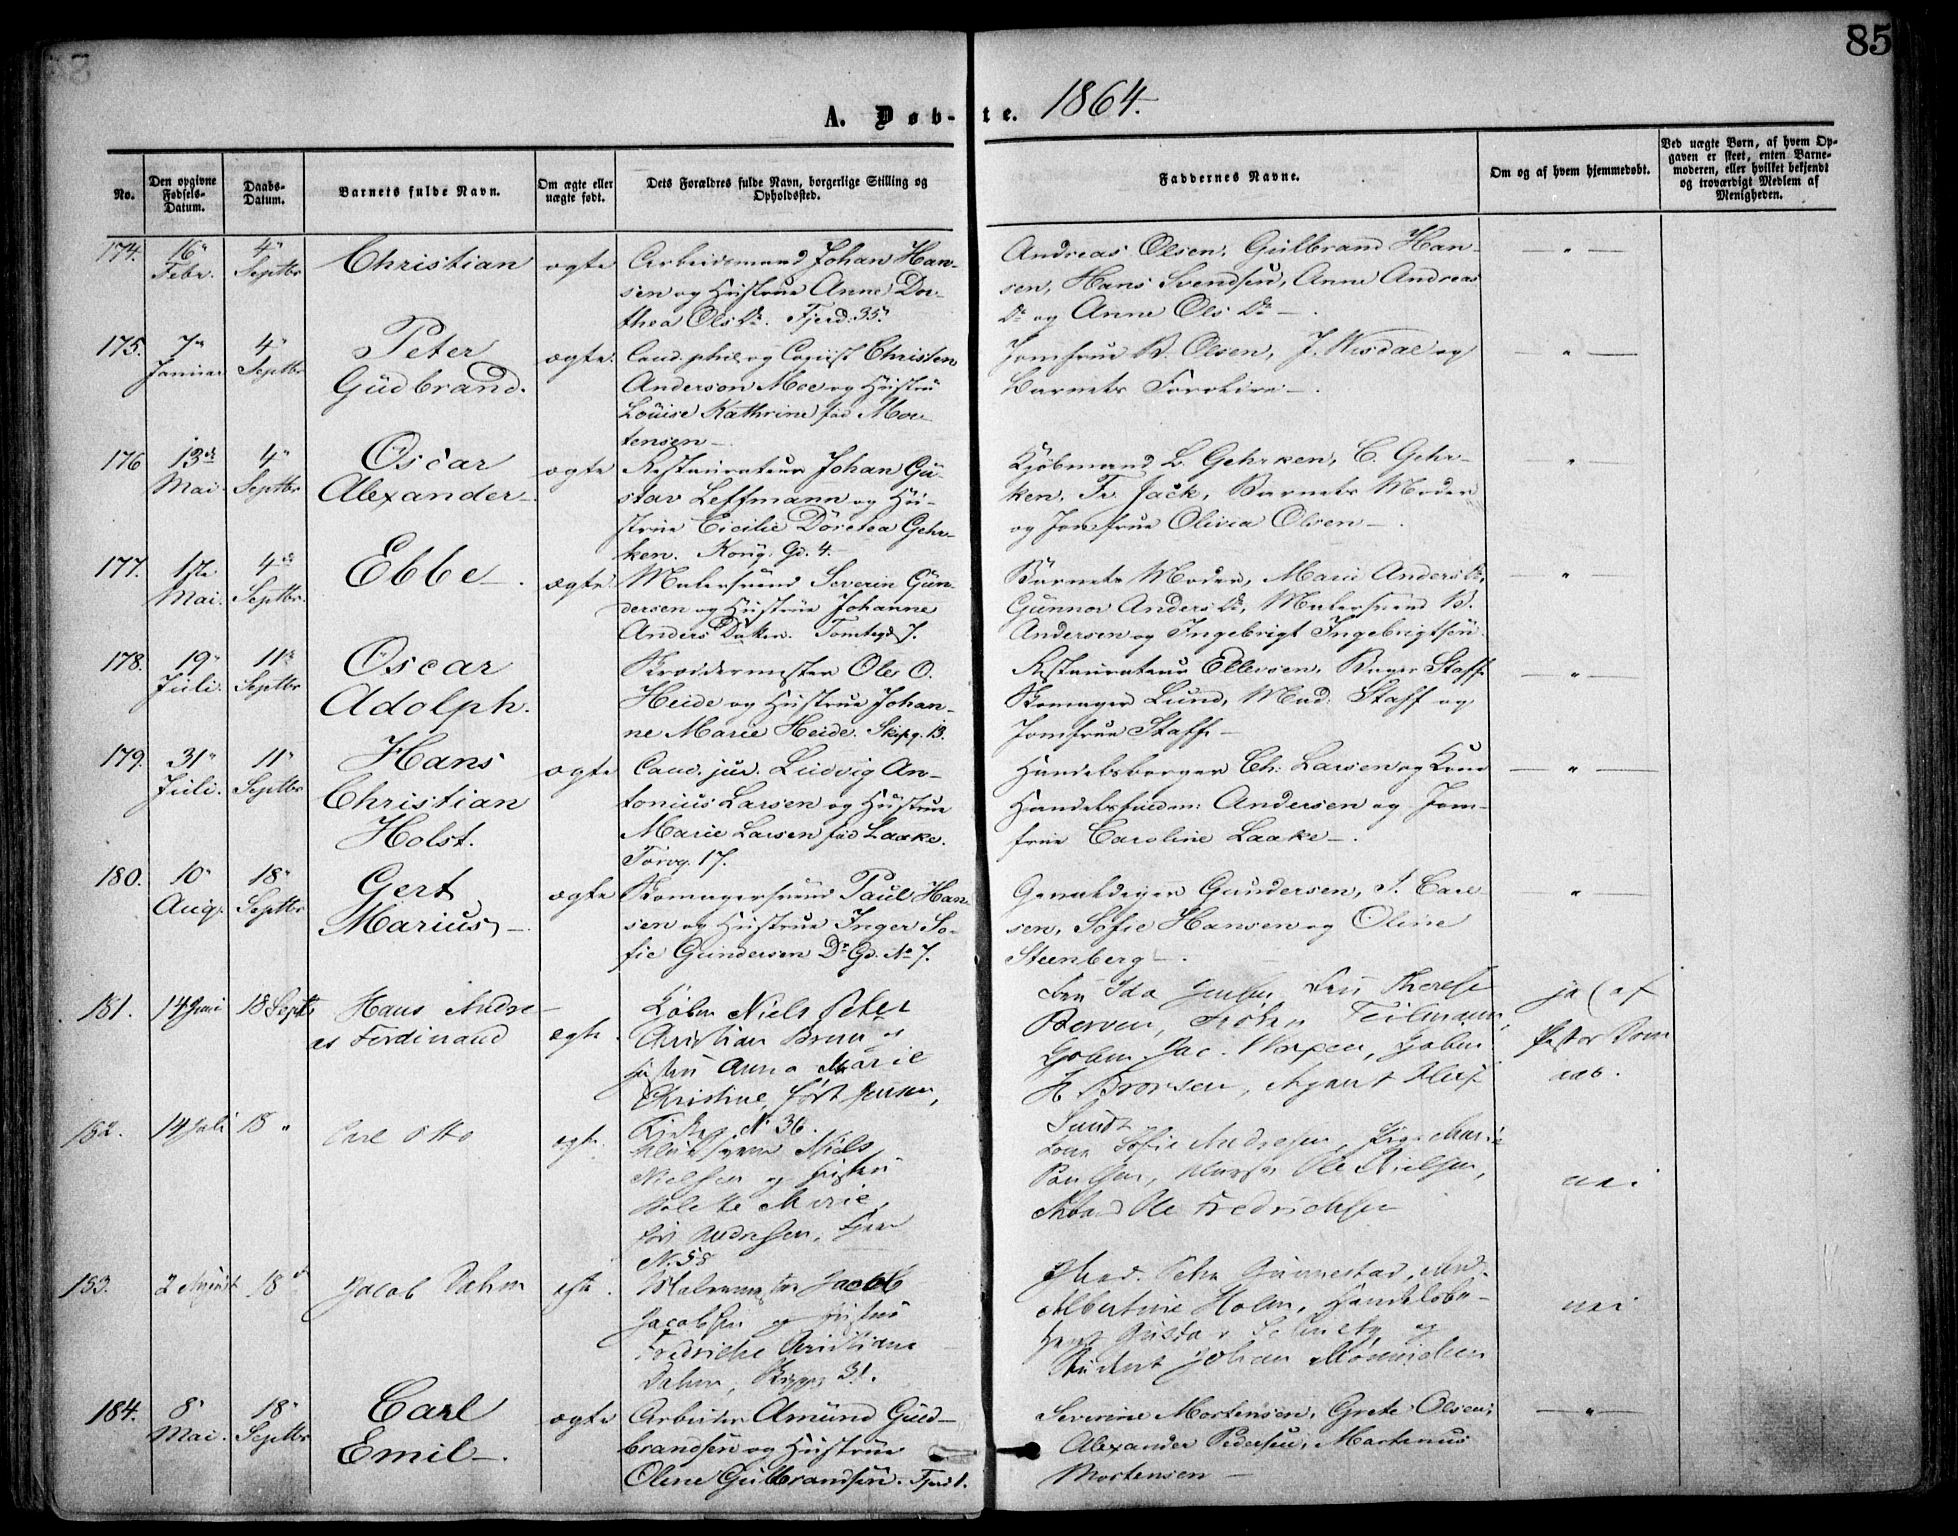 85
A. Døb-te. 1864.
No.
Den opgivne Fødsels-Datum.
Daabs-Datum.
Barnets fulde Navn.
Om ægte eller uægte født.
Dets Forældres fulde Navn, borgerlige Stilling og Opholdssted.
Faddernes Navne.
Om og af hvem hjemmedøbt.
Ved uægte Børn, af hvem Opgaven er skeet, enten Barnemoderen, eller hvilket bekjendt og troværdigt Medlem af Menigheden.
174. 16" Febr. 4" Septbr Christian ægte
Arbeidsmand Johan Han-
sen og Hustrue Anne Dor-
thea Ols Dr. Fjerd. 35.
Andreas Olsen, Gulbrand Han-
sen, Hans Svendsen, Anne Andreas
Dr og Anne Ols Dr —
— " —
175. 7" Januar 4" Septbr Peter Gudbrand. ægte.
Cand. phil. og Copiist Christen
Anderson Moe og Hustru
Louise Kathrine fød Mor-
tensen —
Jomfrue B. Olsen, J. Wisdal og
Barnets Forældre —.
— " —
176 13de Mai 4" Septbr Oscar Alexander ægte
Restaurateur Johan Gu-
stav Leffmann og Hu-
strue Cicilie Dorotea Gehr-
ken. Kong. Gd. 4.
Kjøbmand L. Gehrken, C. Gehr-
ken, Fr. Jack, Barnets Moder
og Jomfrue Olivia Olsen —.
— " —
177. 1ste Mai. 4de Septbr. Ebbe —. ægte
Malersvend Severin Gun-
dersen og Hustrue Johanne
Anders Datter. Tomtegd 7.
Barnets Moder, Marie Anders Dr,
Gunnor Anders Dr, Malersvend B.
Andersen og Ingebrigt Ingebrigtsen
— " —
178. 19" Juli. 11te Septbr Oscar Adolph.
Skræddermester Ole O.
Heide og Hustrue Johan-
ne Marie Heide. Skipg. 13.
Restaurateur Ellevsen, Bager Staff
Skomager Lund, Mad. Staff og
Jomfrue Staff —
— " —
179. 31" Juli. 11" Septbr Hans Christian Holst. ægte
Cand. jur. Ludvig An-
tonius Larsen og Hustrue
Marie Larsen fød Laake.
Torvg. 17.
Handelsborger Ch. Larsen og Kone
Andersen og Jom-
frue Caroline Laake —.
— " —
180. 10" Aug. 18" Septbr Gert Marius — ægte
Skomagersvend Paul Han-
sen og Hustrue Inger So-
fie Gundersen Dr. Gd. No 7.
Gundersen, S. Carl-
sen, Sofie Hansen og Oline
Steenberg —.
— " —
181. 14 Juni 18 Septbr Hans Andre-
as Ferdinand ægte
Kjøbm Niels Peter
Christian Bruun og
Hustru Anna Marie
Christine, født Jensen,
No 36.
Fru Ida Jensen, Fru Therese
Frøken Teilmann,
Kjøbm. Jac.
H Brorsen, Agent
Sundt
ja (af
Pastor
182. 14 Juli 18 " Carl Otto ægte.
Niels
Nielsen og Hustru
Marie,
født Andresen, Fjerd
No. 58
Sofie Andresen, Marie
Paulsen, Ole Nielsen,
Ole Fredriksen
nei
183. 2 August 18 " Jacob Dahm ægte.
Malermester Jacob
Jacobsen og Hustru
Fredrikke Christiane
Dahm, 31.
Mad. Petra Gunnestad, Mad.
Albertine Holm, Handelsbe-
Gustav og
Student Johan
nei
184. 8" Mai. 18" Septbr Carl Emil —. ægte
Arbeider Amund Gud-
brandsen og Hustrue
Oline Gulbrandsen. Fjerd 1.
Severine Mortensen, Grete Olsen,
Alexander Pedersen, Martinus
Mortensen —
— " —